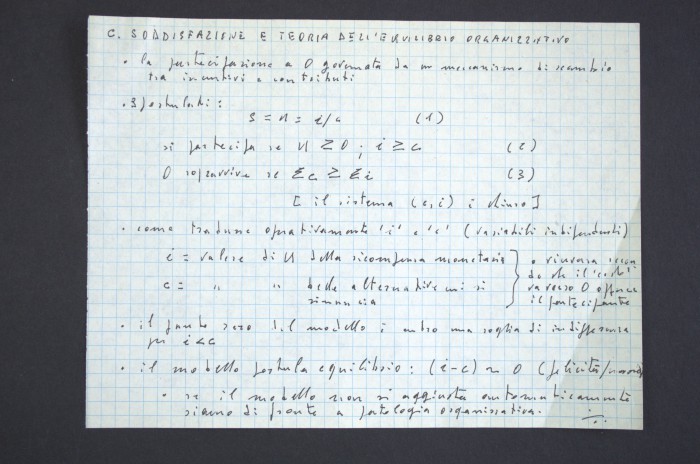 C. SODDISFAZIONE E TEORIA DELL'EQUILIBRIO ORGANIZZATIVO
• la partecipazione a O governata da un meccanismo di scambio
tra incentivi e contributi
• 3 postulati:
S = U = i/c (1)
si partecipa se U ≥ 0 ; i ≥ c (2)
O sopravvive se Σc ≥ Σi (3)
[ il sistema (c,i) è chiuso ]
• come tradurre operativamente 'i' e 'c' (variabili indipendenti)
i = valore di U della ricompensa monetaria
c = " " delle alternative cui si
rinuncia
o viceversa
che il 'cost'
va verso O
il partecipante
• il punto zero del modello è entro una soglia di indifferenza
per i<c
• il modello postula equilibrio: (i-c) ≈ 0 (felicità/
• se il modello non si aggiusta automaticamente
siamo di fronte a patologia organizzativa.